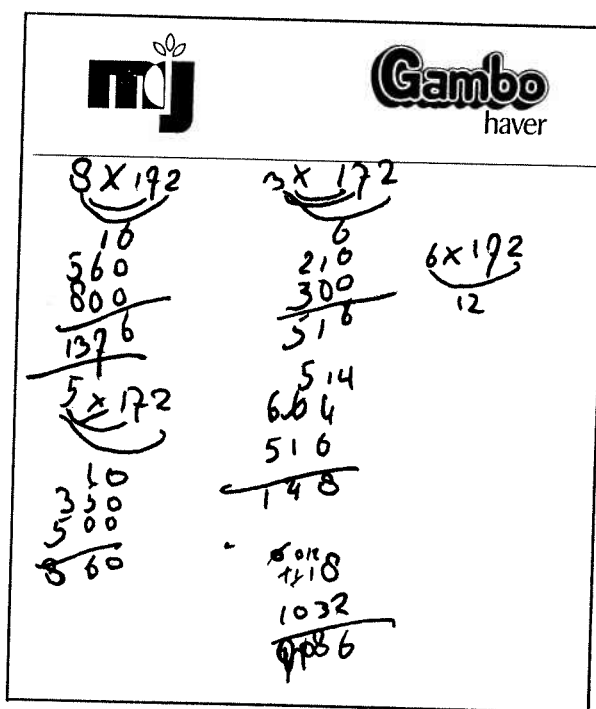 mj
Gambo
haver
8 x 172
16
560
800
1376
5 x 172
10
350
500
860
3 x 172
6
210
300
516
514
664
516
148
1118
1032
86
6 x 172
12